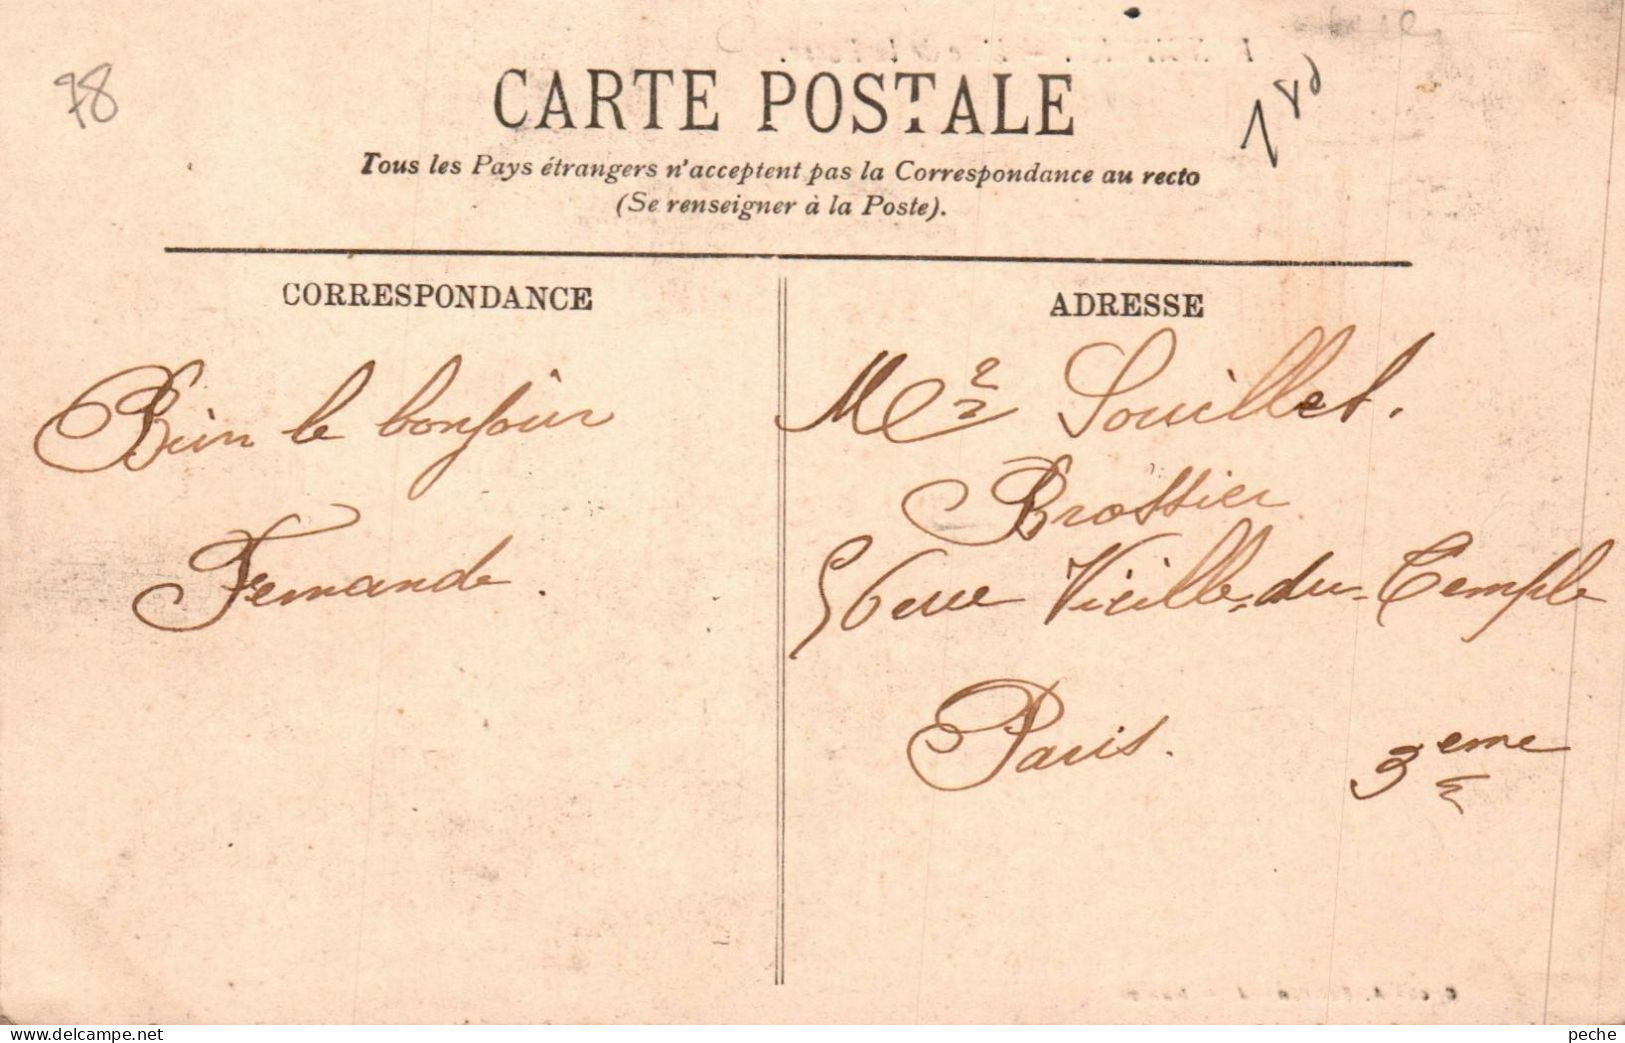 78
CARTE POSTALE
Tous les Pays étrangers n'acceptent pas la Correspondance au recto
(Se renseigner à la Poste).
CORRESPONDANCE
Bien le bonjour
Fernande.
ADRESSE
Mr Souillet.
Brossier
56 rue Vieille-du-Temple
Paris. 3eme
peche